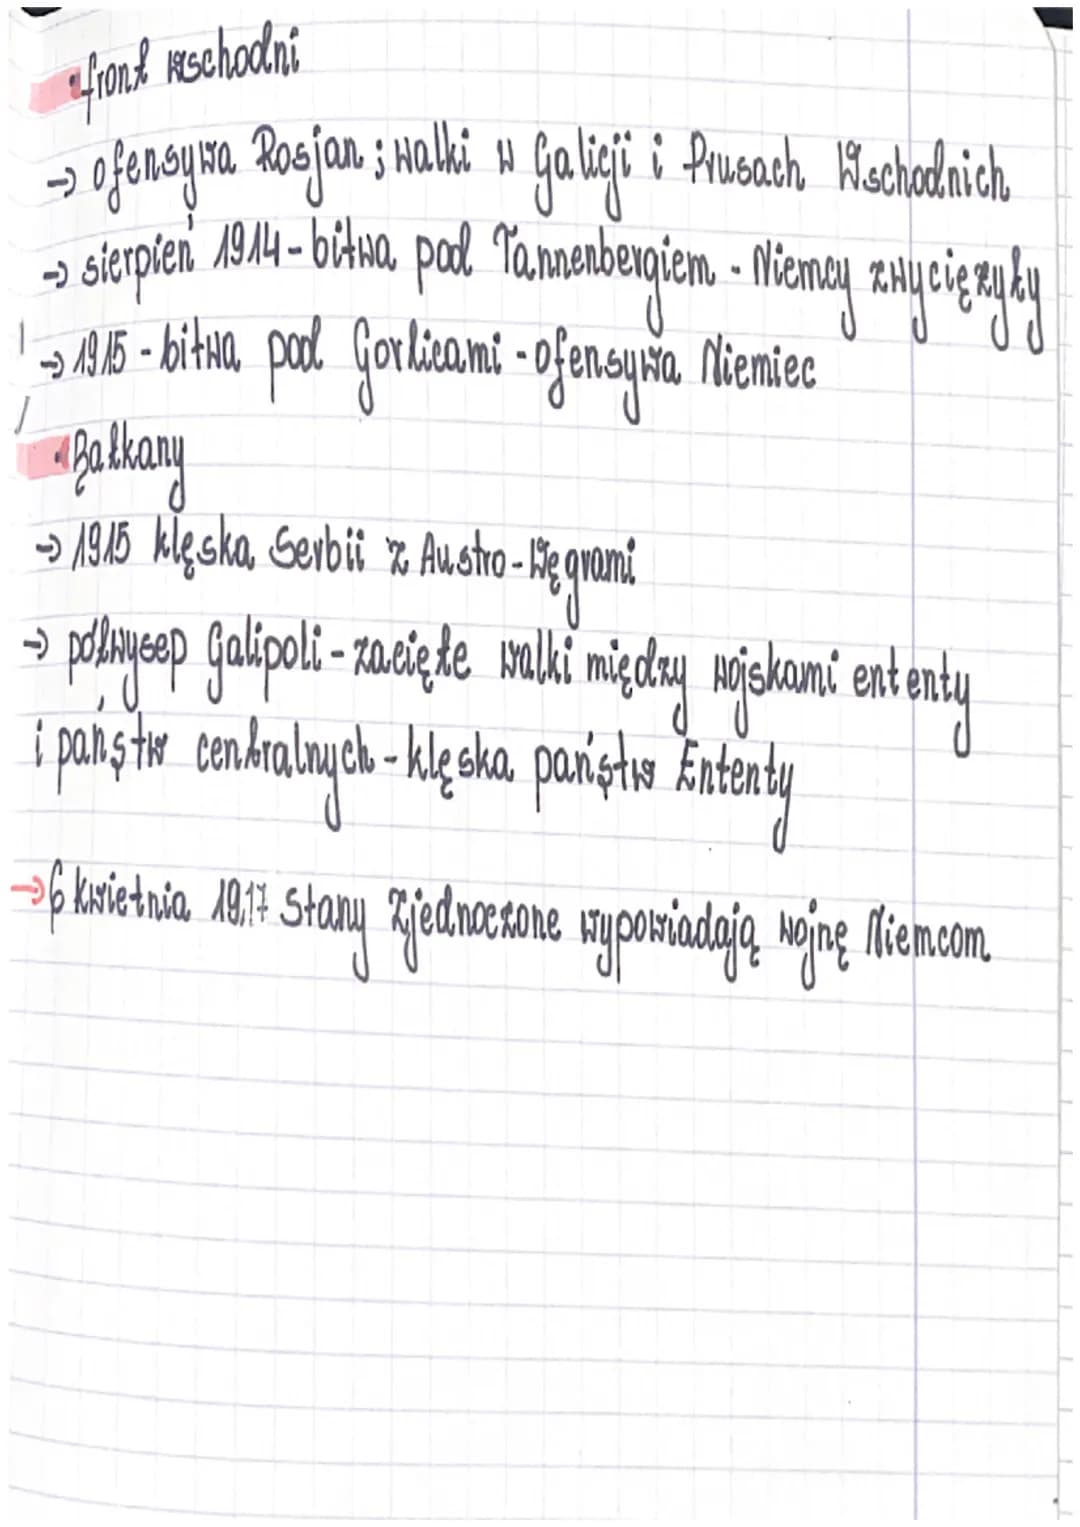 • front wschodni
→ ofensywa Rosjan ; walki w Galicji i Prusach Wschodnich
→ sierpień 1914 - bitwa pod Tannenbergiem - Niemcy zwyciężyły
→ 1915 - bitwa pod Gorlicami - ofensywa Niemiec
• Bałkany
→ 1915 klęska Serbii z Austro-Węgrami
→ półwysep Galipoli - zacięte walki między wojskami ententy
i państw centralnych - klęska państw Ententy
→ 6 kwietnia 1917 Stany Zjednoczone wypowiadają wojnę Niemcom